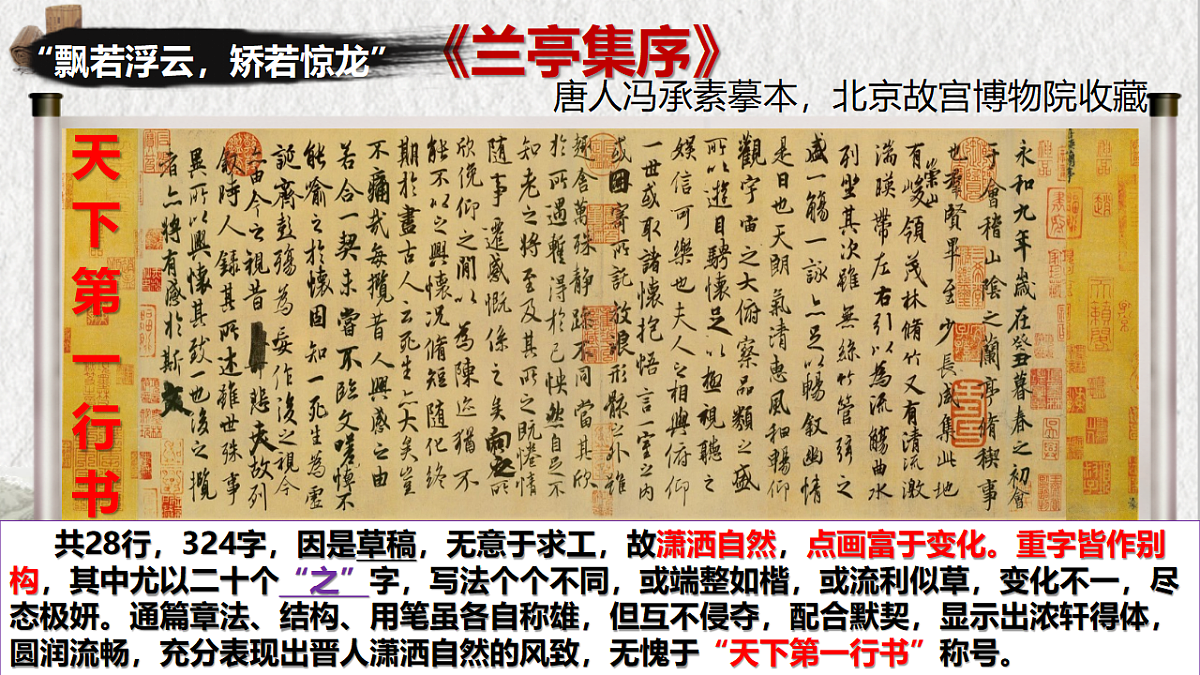 “飘若浮云，矫若惊龙”
《兰亭集序》
唐人冯承素摹本，北京故宫博物院收藏
天下第一行书
永和九年歲在癸丑暮春之初會
于會稽山陰之蘭亭脩稧事
也群賢畢至少長咸集此地
有崇山峻領茂林脩竹又有清流激
湍暎帶左右引以為流觴曲水
列坐其次雖無絲竹管弦之
盛一觴一詠亦足以暢敘幽情
是日也天朗氣清惠風和暢仰
觀宇宙之大俯察品類之盛
所以遊目騁懷足以極視聽之
娛信可樂也夫人之相與俯仰
一世或取諸懷抱悟言一室之內
或因寄所託放浪形骸之外雖
趣舍萬殊靜躁不同當其欣
於所遇蹔得於己怏然自足不
知老之將至及其所之既惓情
隨事遷感慨係之矣向之所
欣俛仰之閒以為陳迹猶不
能不以之興懷況脩短隨化終
期於盡古人云死生亦大矣豈
不痛哉每攬昔人興感之由
若合一契未嘗不臨文嗟悼不
能喻之於懷固知一死生為虛
誕齊彭殤為妄作後之視今
亦由今之視昔悲夫故列
敘時人錄其所述雖世殊事
異所以興懷其致一也後之攬
者亦將有感於斯文
共28行，324字，因是草稿，无意于求工，故潇洒自然，点画富于变化。重字皆作别
构，其中尤以二十个“之”字，写法个个不同，或端整如楷，或流利似草，变化不一，尽
态极妍。通篇章法、结构、用笔虽各自称雄，但互不侵夺，配合默契，显示出浓轩得体，
圆润流畅，充分表现出晋人潇洒自然的风致，无愧于“天下第一行书”称号。